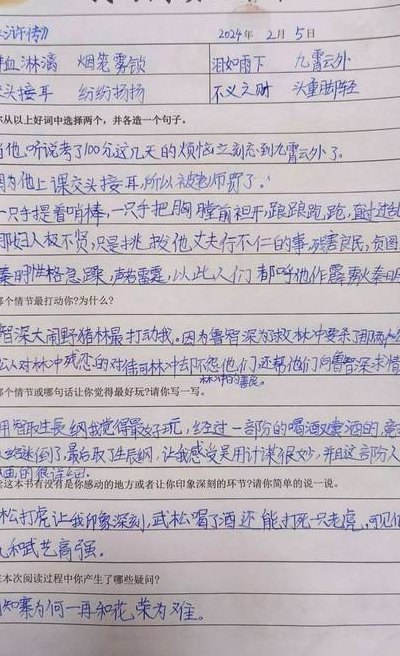 水浒传 2024年 2月 5日
血淋漓 烟笼雾锁 泪如雨下 九霄云外
头接耳 纷纷扬扬 不义之财 头重脚轻
从以上好词中选择两个，并各造一个句子。
当他听说考了100分这几天的烦恼立刻忘到九霄云外了。
因为他上课交头接耳，所以被老师罚了。
一只手提着哨棒，一只手把胸膛前袒开，踉踉跄跄，直过
那妇人极不贤，只是挑拨他丈夫行不仁的事，残害良民，贪图
秦明性格急躁，声若雷霆，以此人们都呼他作霹雳火秦明
个情节最打动你?为什么?
智深大闹野猪林最打动我。因为鲁智深为了救林冲要杀了那两个
公人对林冲残忍的对待可林冲却不怨他们还帮他们向鲁智深求情
林冲的善良。
个情节或哪句话让你觉得最好玩？请你写一写。
用智取生辰纲我觉得最好玩，经过一部份的喝酒卖酒的，
迷倒了，最后取了生辰纲，让我感受吴用计谋很妙，并且这部分人
的很详细.
这本书有没有是你感动的地方或者让你印象深刻的环节?请你简单的说一说。
松打虎让我印象深刻，武松喝了酒还能打死一只老虎，可见他
和武艺高强。
本次阅读过程中你产生了哪些疑问?
知寨为何一再和花荣为难。